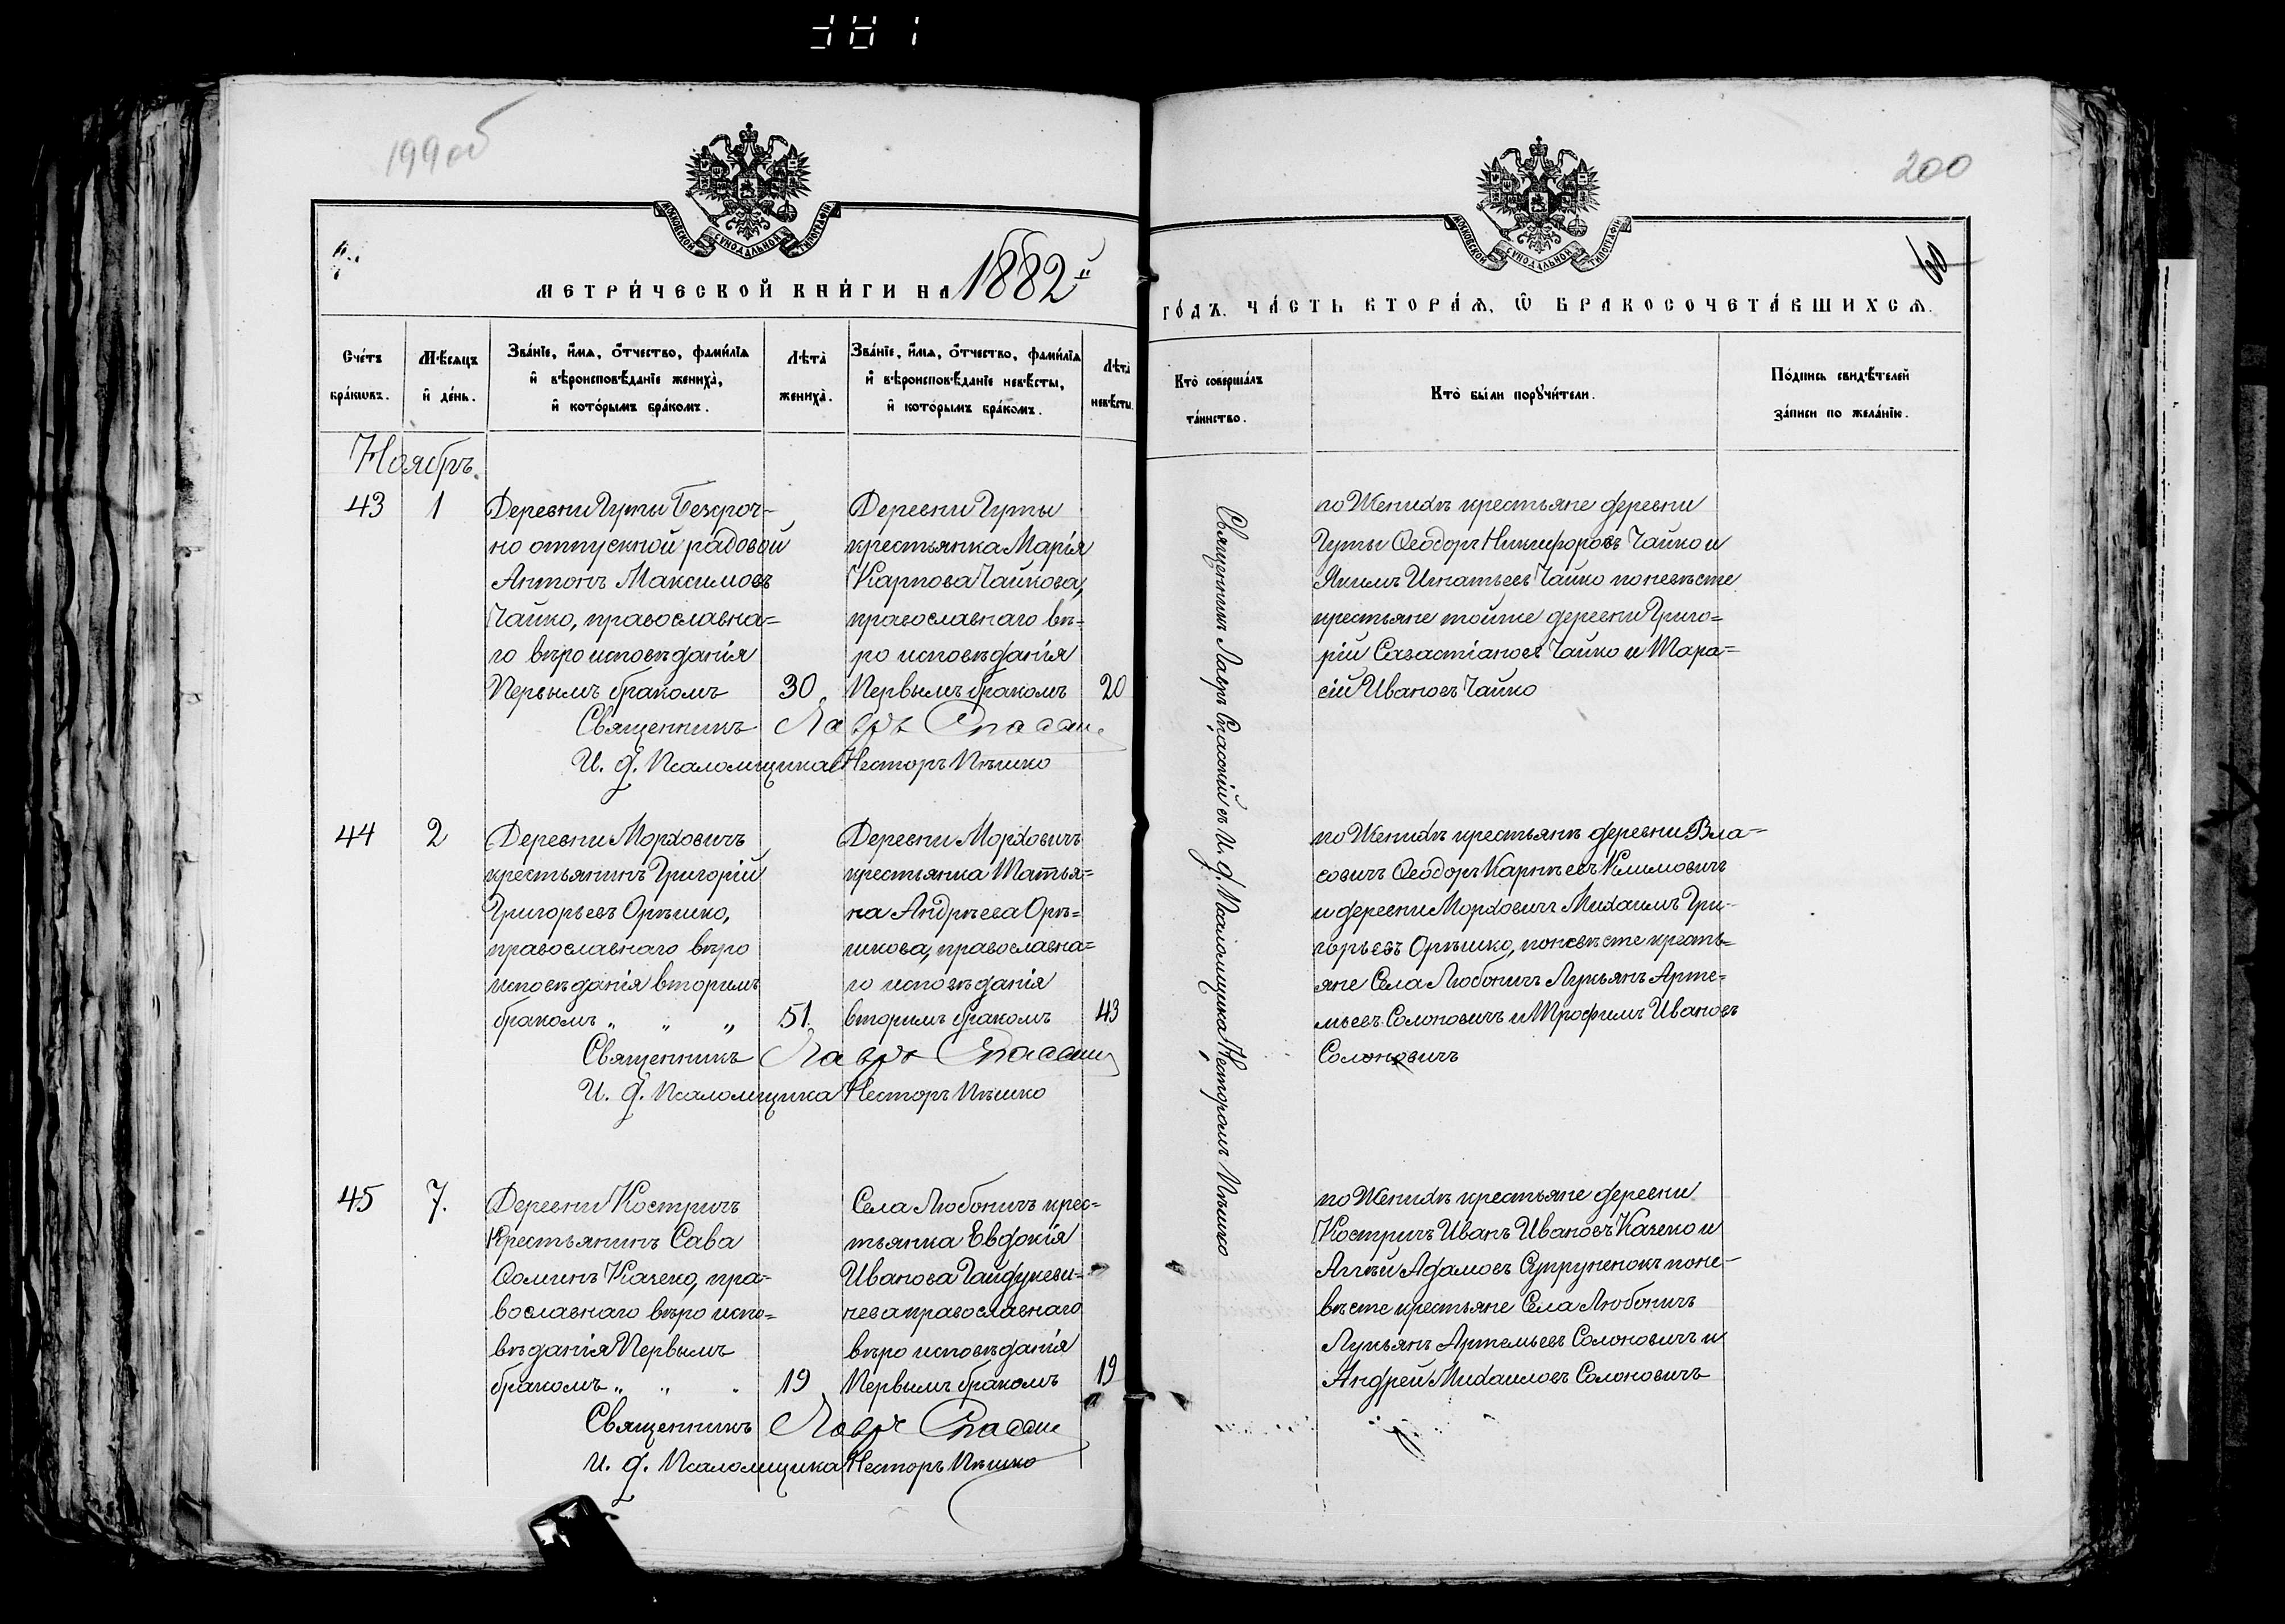 381
199об
200
МОСКОВСКОЙ СѴНОДАЛЬНОЙ ТИПОГРАФІИ
МОСКОВСКОЙ СѴНОДАЛЬНОЙ ТИПОГРАФІИ
МЕТРИ́ЧЕСКОЙ КНИ́ГИ НА 1882й
ГО́ДЪ. ЧА́СТЬ ВТОРА́Ѧ, Ѽ БРАКОСОЧЕТА́ВШИХСѦ.
Сче́тъ бра́кѡвъ.
Мѣ́сяцъ и҆ де́нь.
Зва́нїе, и҆́мѧ, ѻ҆́тчество, фами́лїѧ и҆ вѣроисповѣ́данїе жениха̀, и҆ кото́рымъ бра́комъ.
Лѣта̀ жениха̀.
Зва́нїе, и҆́мѧ, ѻ҆́тчество, фами́лїѧ и҆ вѣроисповѣ́данїе невѣ́сты, и҆ кото́рымъ бра́комъ.
Лѣта̀ невѣ́сты.
Кто̀ соверша́лъ та́инство.
Кто̀ бы́ли порꙋчи́тели.
По́дпись свидѣ́телей за́писи по жела́нїю.
Ноябрь.
43
1
Деревни Гуты Безсроч-
но отпускной радовой
Антонъ Максимовъ
Чайко, православна=
го вѣро исповѣданія
Первымъ бракомъ
30.
Деревни Гуты
крестьянка Марія
Карпова Чайкова,
православнаго вѣ-
ро исповѣданія
Первымъ бракомъ
20
Священникъ Лавръ Спасскій
И. д. Псаломщика Несторъ Пѣшко
по Женихѣ крестьяне деревни
Гуты Ѳеодоръ Никифоровъ Чайко и
Якимъ Игнатьевъ Чайко по невѣсте
крестьяне тойже деревни Григо=
рій Савастіановъ Чайко и Тара=
сій Ивановъ Чайко
44
2
Деревни Морховичъ
крестьянинъ Григорій
Григорьевъ Орѣшко,
православнаго вѣро
исповѣданія вторымъ
бракомъ „ „ „
51.
Деревни Морховичъ
крестьянка Татья=
на Андрѣева Орѣ=
шкова, православна=
го исповѣданія
вторымъ бракомъ
43
Священникъ Лавръ Спасскій
И. д. Псаломщика Несторъ Пѣшко
по Женихѣ крестьянъ деревни Вла=
совичъ Ѳеодоръ Карнѣевъ Климовичъ
и деревни Морховичъ Михаилъ Гри-
горьевъ Орѣшко, по невѣсте кресть=
яне Села Любоничъ Лукьянъ Арте=
мьевъ Солоновичъ и Трофимъ Ивановъ
Солоновичъ
45
7.
Деревни Костричъ
Крестьянинъ Сава
Ѳоминъ Качеко, пра=
вославнаго вѣро испо=
вѣданія Первымъ
бракомъ „ „ .
19
Села Любоничъ крес=
тьянка Евдокія
Иванова Гайдукеви=
чева православнаго
вѣро исповѣданія
Первымъ бракомъ
19
Священникъ Лавръ Спасскій
И. д. Псаломщика Несторъ Пѣшко
по Женихѣ крестьяне деревни
Костричъ Иванъ Ивановъ Качеко и
Аггѣй Адамовъ Супруненокъ по не-
вѣсте крестьяне Села Любоничъ
Лукьянъ Артемьевъ Солоновичъ и
Андрей Михаиловъ Солоновичъ
Священникъ Лавръ Спаскій съ И. д. Псаломщика Несторомъ Пѣшко